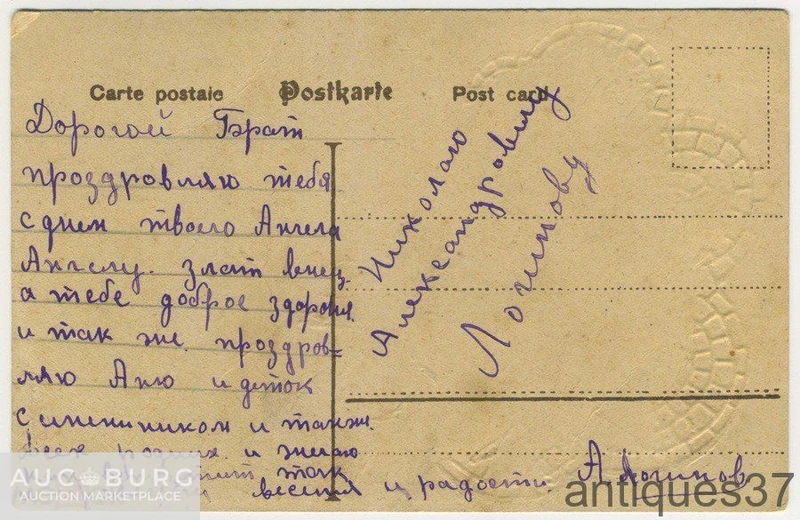 Carte postale Postkarte Post card
Дорогой Брат
проздровляю тебя
с днем твоего Ангела
Ангелу злат венец
а тебе доброе здоровя
и так же проздров=
ляю Аню и деток
с имениником и также
всех родных и желаю
так
веселя и радости А. Логинов
Николаю
Александровичу
Логинову
AUC BURG
AUCTION MARKETPLACE
antiques37